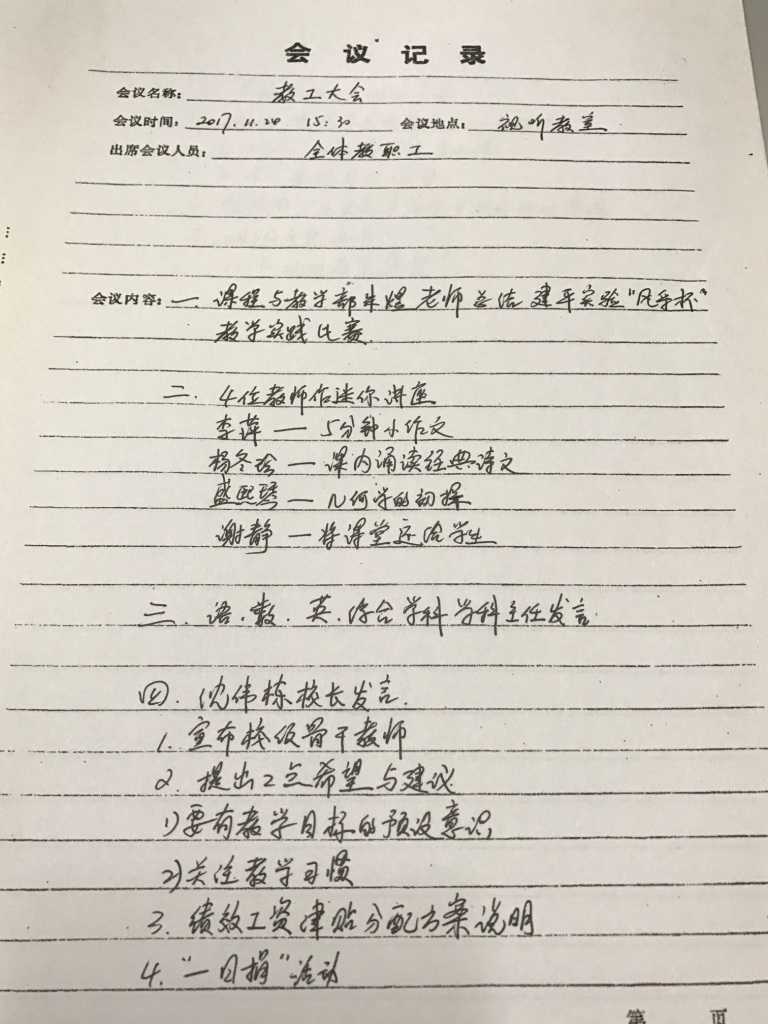 会议记录
会议名称： 教工大会
会议时间： 2017.11.24 15:30 会议地点： 视听教室
出席会议人员： 全体教职工
会议内容： 一. 课程与教学部朱煜老师总结建平实验"凡秀杯"
教学实践比赛.
二. 4位教师作迷你讲座
李萍 — 5分钟小作文
杨冬玲 — 课内诵读经典诗文
盛熙琇 — 几何学的初探
谢静 — 将课堂还给学生
三. 语.数.英.综合学科学科主任发言.
四. 沈伟栋校长发言.
1. 宣布校级骨干教师
2. 提出2点希望与建议
1)要有教学目标的预设意识
2)关注教学习惯
3. 绩效工资津贴分配方案说明
4. "一日捐"活动
第 页